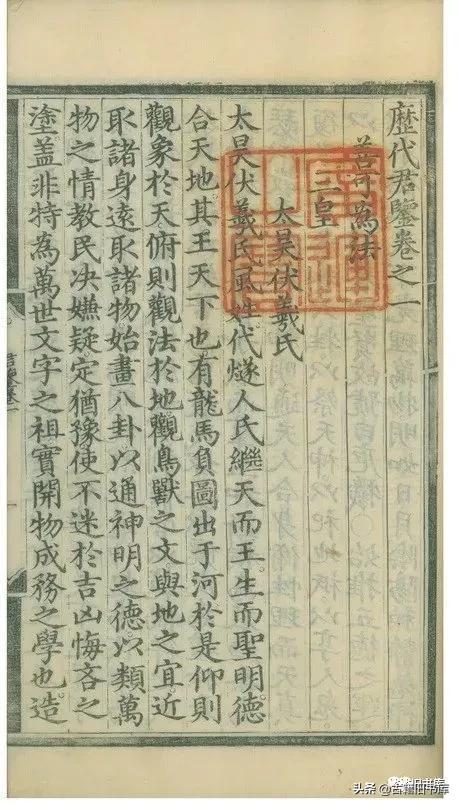 歷代君鑒卷之一
善可為法
三皇
太昊伏羲氏
太昊伏羲氏風姓代燧人氏繼天而王生而聖明德
合天地其王天下也有龍馬負圖出于河於是仰則
觀象於天俯則觀法於地觀鳥獸之文與地之宜近
取諸身遠取諸物始畫八卦以通神明之德以類萬
物之情教民决嫌疑定猶豫使不迷於吉凶悔吝之
塗盖非特為萬世文字之祖實開物成務之學也造
头条 @古籍旧书库